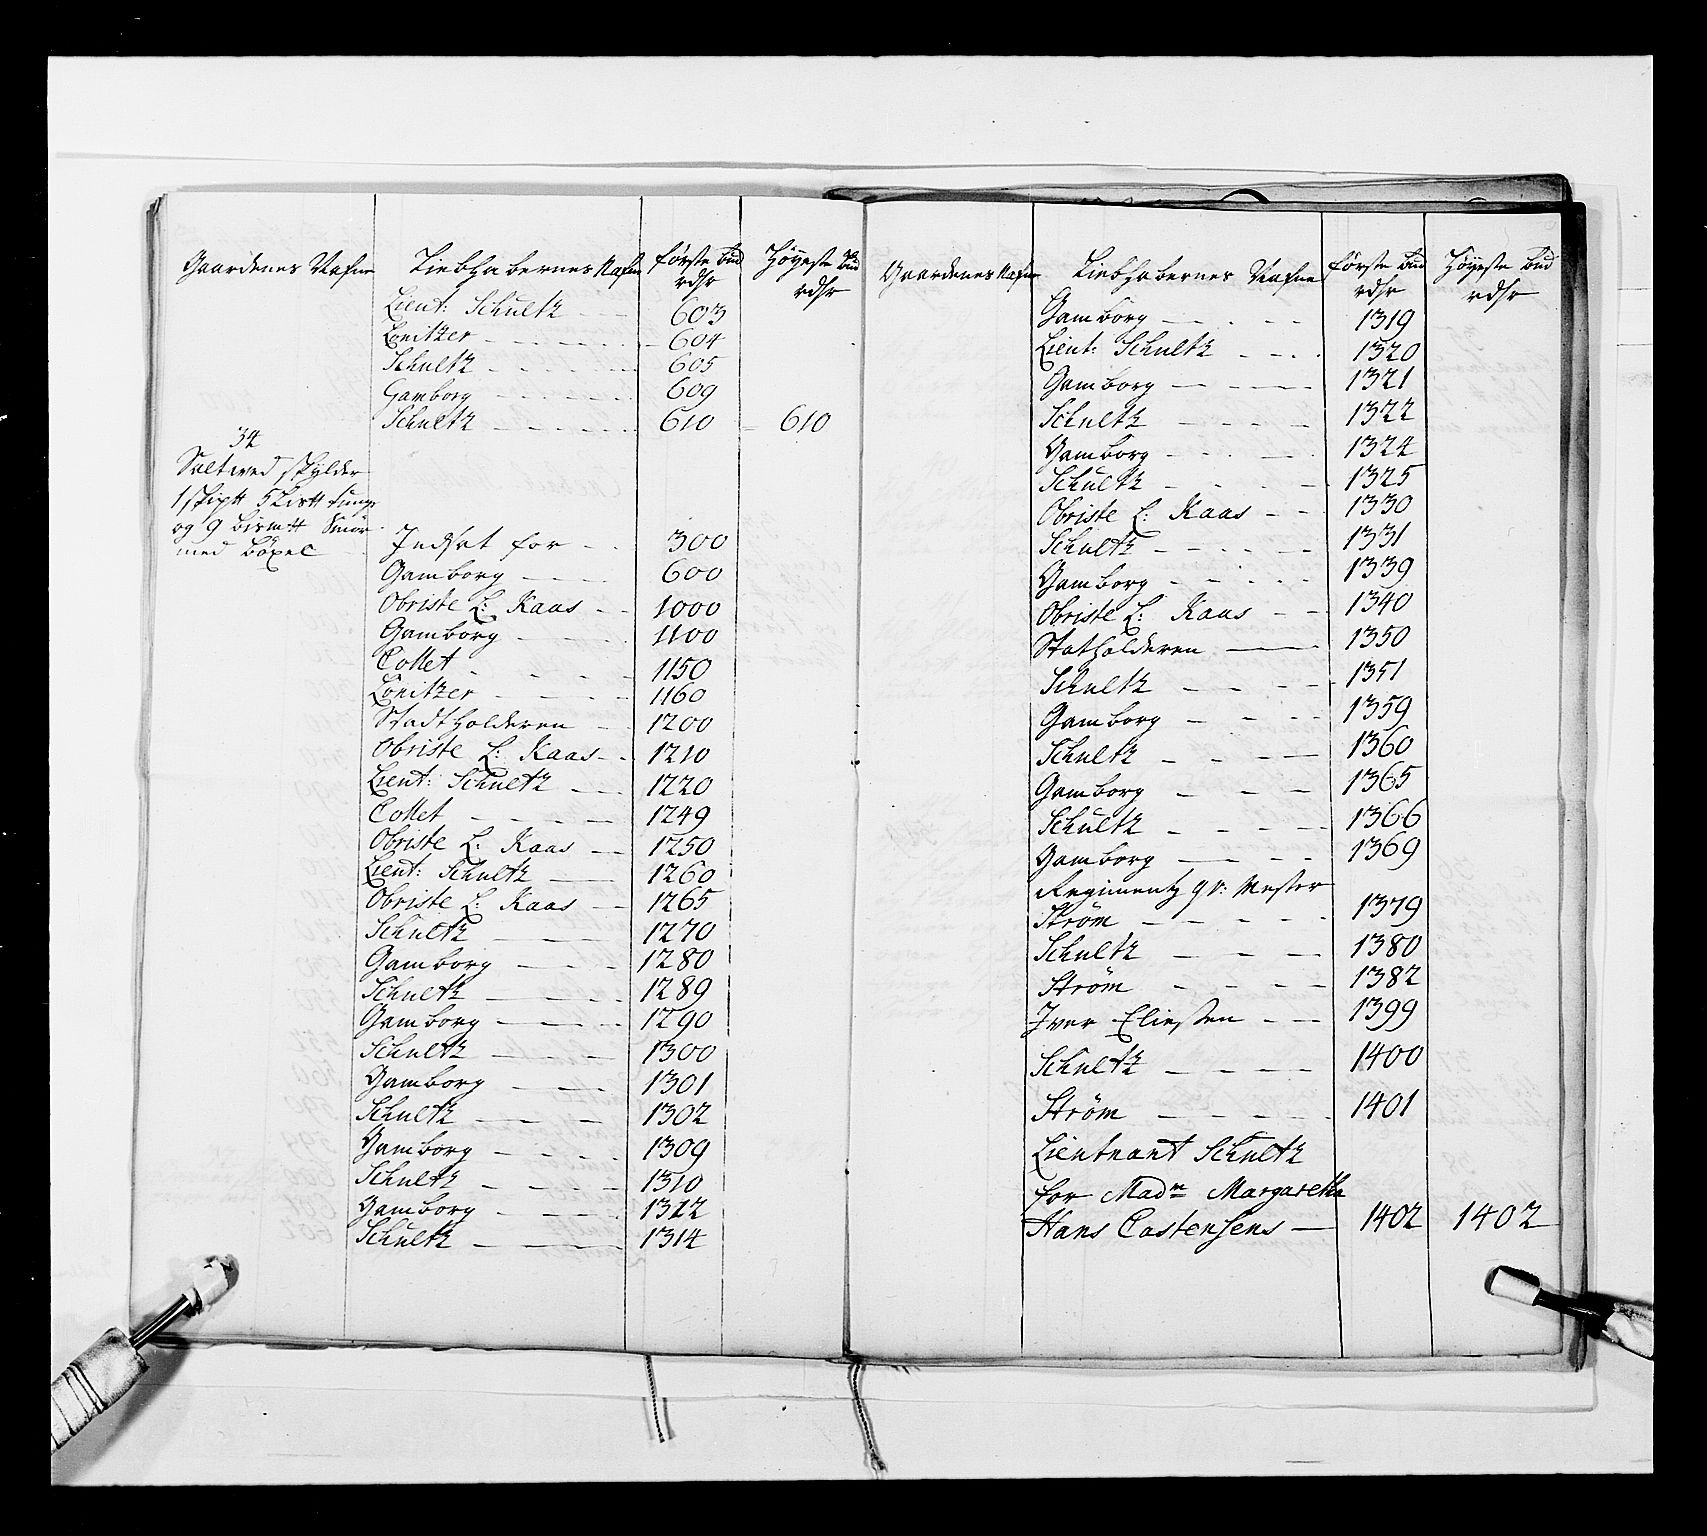 Gaardenes Nafne Liebhabernes Nafne første bud rdlr Höyeste bud rdlr
Lieut: Schultz 603
Lonitzer 604
Schultz 605
Gamborg 609
Schultz 610 610
34
Saltved skylder
1 skip℔ 5 Lis℔ tunge
og 9 bism℔ Smör
med böxel Indsat for 300
Gamborg 600
Obriste L: Kaas 1000
Gamborg 1100
Collet 1150
Lonitzer 1160
Stadtholderen 1200
Obriste L: Kaas 1210
Lieut: Schultz 1220
Collet 1249
Obriste L: Kaas 1250
Lieut: Schultz 1260
Obriste L: Kaas 1265
Schultz 1270
Gamborg 1280
Schultz 1289
Gamborg 1290
Schultz 1300
Gamborg 1301
Schultz 1302
Gamborg 1309
Schultz 1310
Gamborg 1312
Schultz 1314
Gaardenes Nafne Liebhabernes Nafne første bud rdlr Höyeste bud rdlr
Gamborg 1319
Lieut: Schultz 1320
Gamborg 1321
Schultz 1322
Gamborg 1324
Schultz 1325
Obriste L: Kaas 1330
Schultz 1331
Gamborg 1339
Obriste L: Kaas 1340
Statholderen 1350
Schultz 1351
Gamborg 1359
Schultz 1360
Gamborg 1365
Schultz 1366
Gamborg 1369
Regimentz qv: Mester
Ström 1379
Schultz 1380
Ström 1382
Iver Eliesen 1399
Schultz 1400
Ström 1401
Lieutnant Schultz
for Madm Margaretha
Hans Castensens 1402 1402